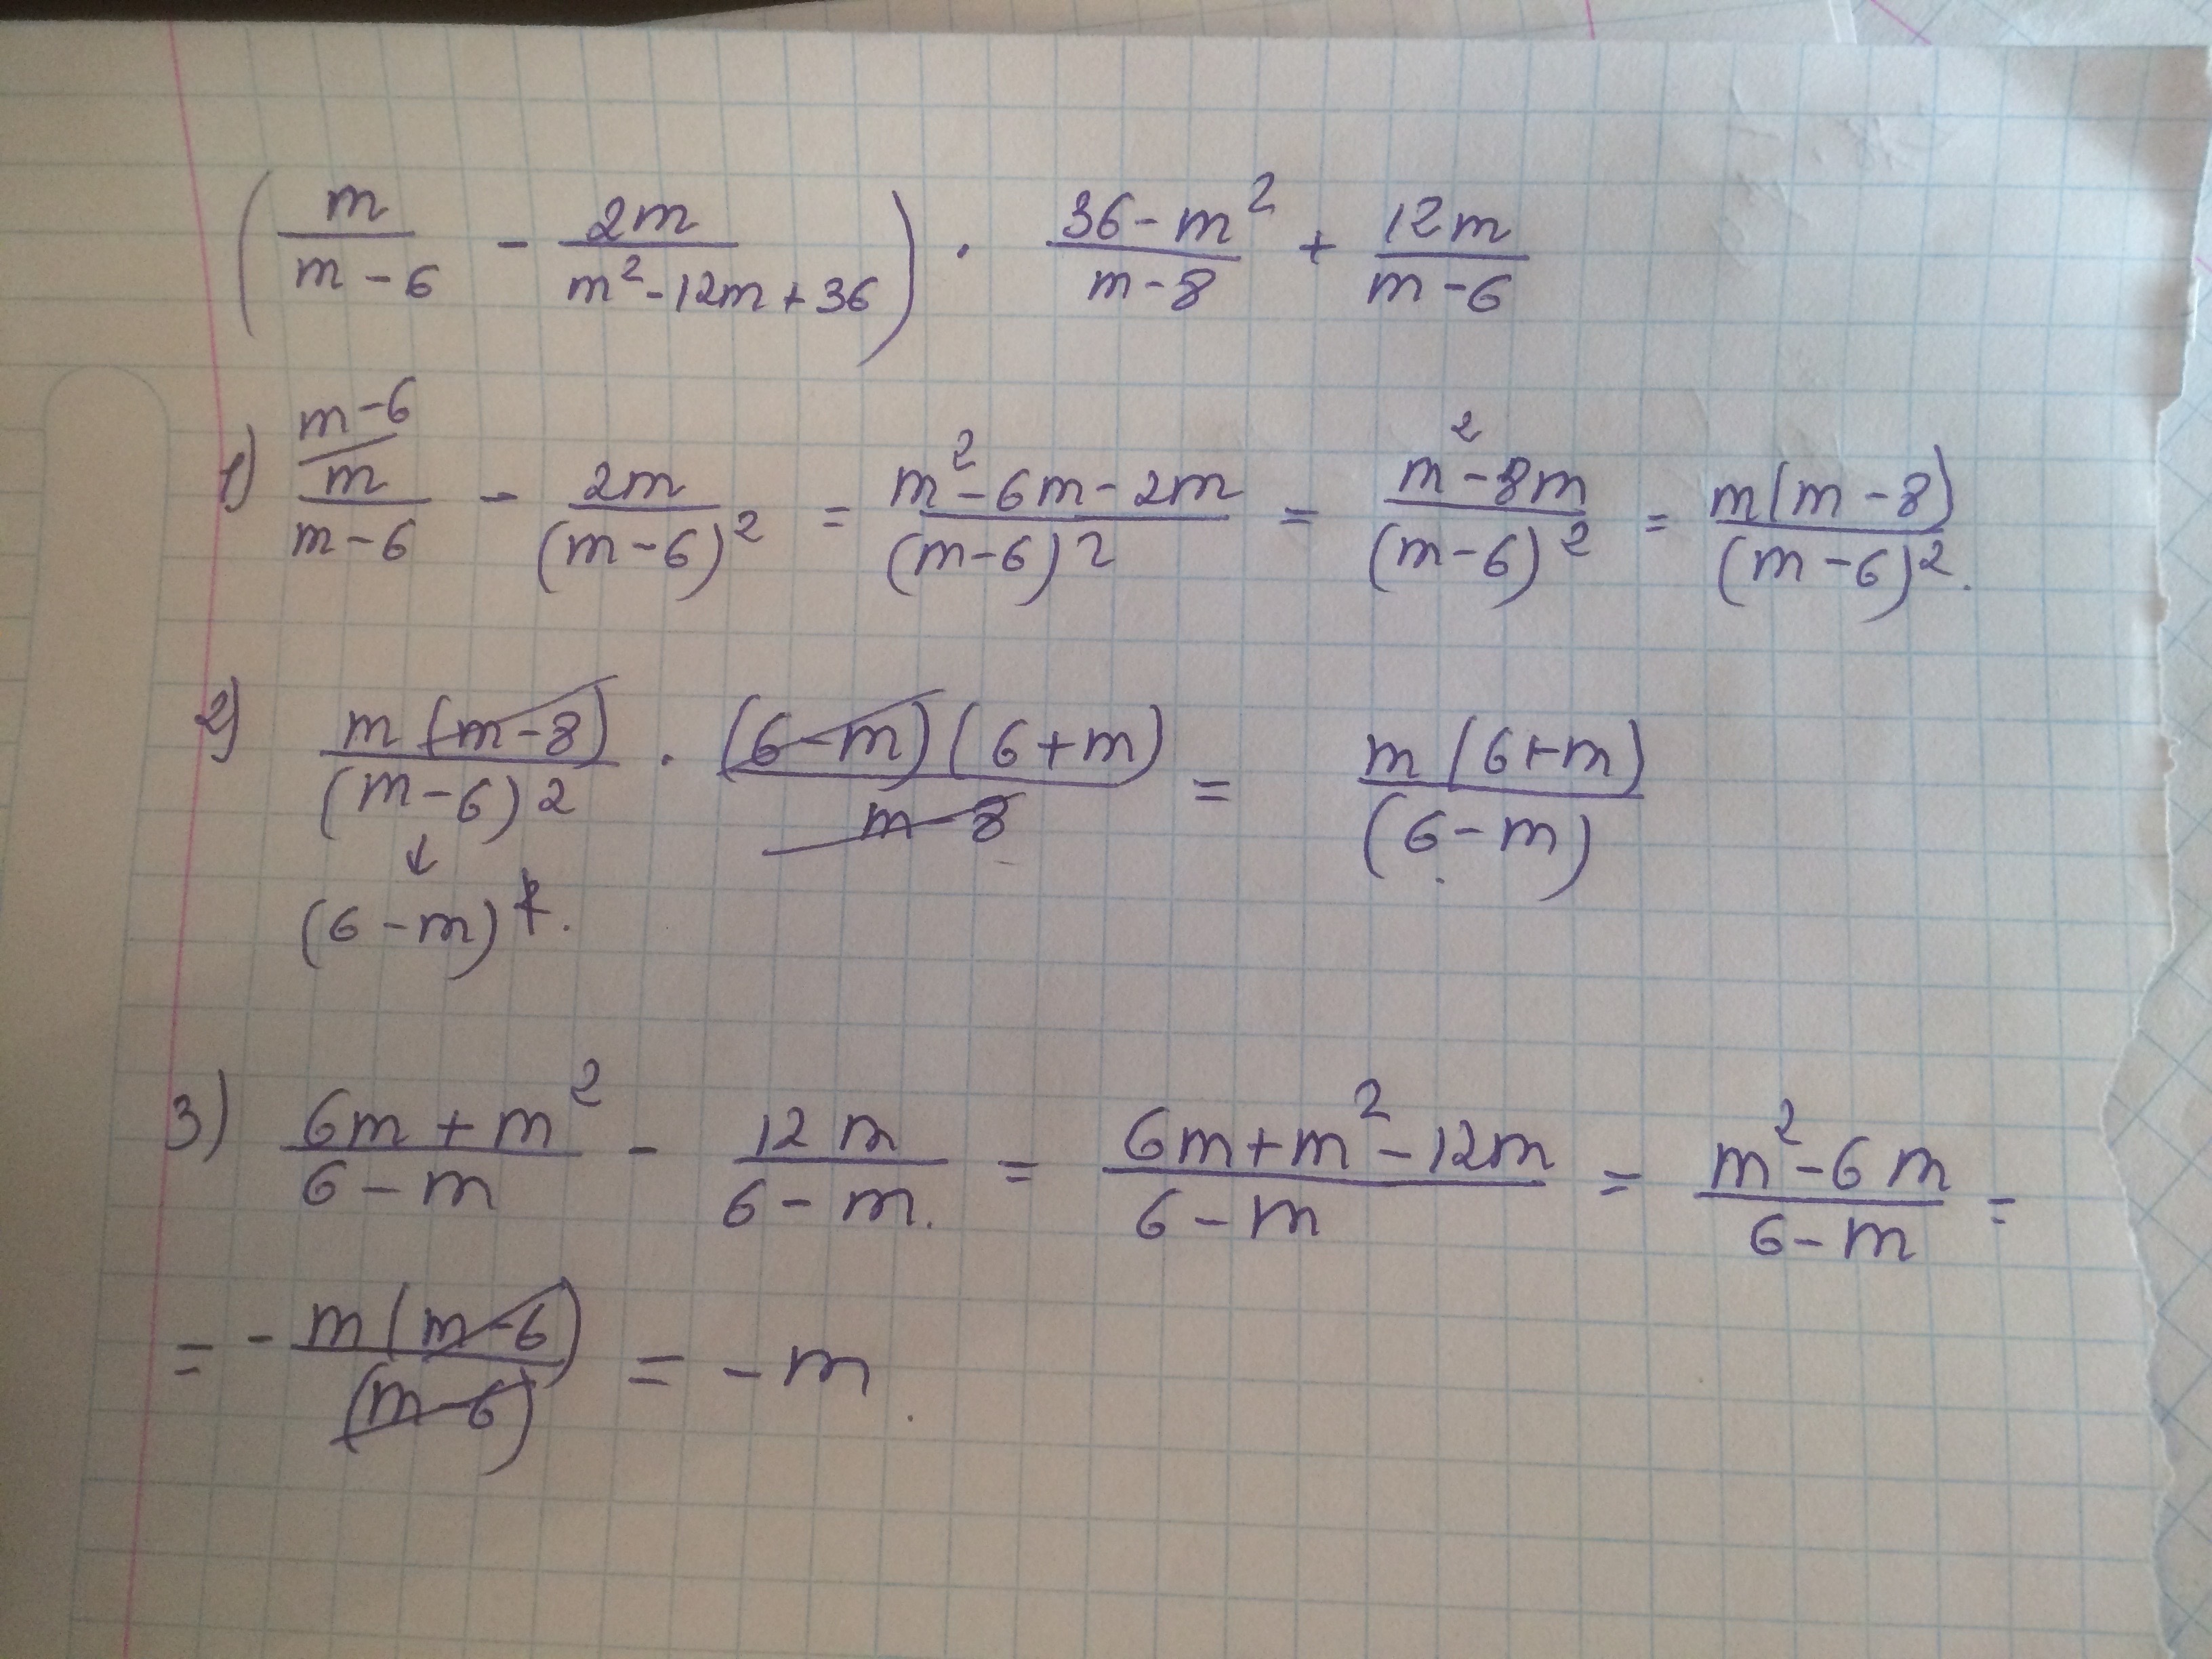 (m/(m-6) - 2m/(m²-12m+36)) · (36-m²)/(m-8) + 12m/(m-6)
1) m-6/ m/(m-6) - 2m/(m-6)² = (m²-6m-2m)/(m-6)² = (m²-8m)/(m-6)² = m(m-8)/(m-6)².
2) m(m-8)/(m-6)² · (6-m)(6+m)/(m-8) = m(6+m)/(6-m)
↓
(6-m)².
3) (6m+m²)/(6-m) - 12m/(6-m) = (6m+m²-12m)/(6-m) = (m²-6m)/(6-m) =
= - m(m-6)/(m-6) = -m.